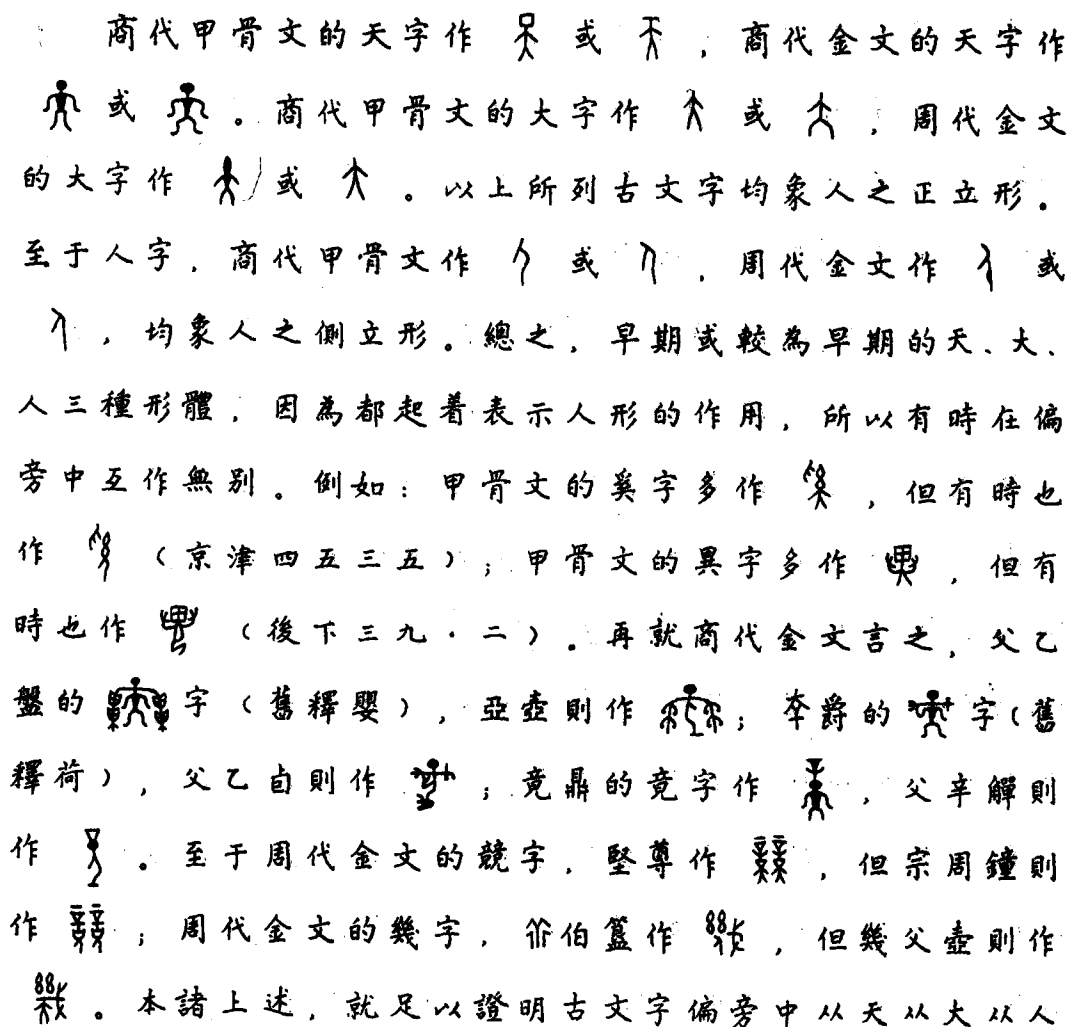 商代甲骨文的天字作 或 ，商代金文的天字作
或 。商代甲骨文的大字作 或 ，周代金文
的大字作 或 。以上所列古文字均象人之正立形。
至于人字，商代甲骨文作 或 ，周代金文作 或
，均象人之側立形。總之，早期或較為早期的天、大、
人三種形體，因為都起着表示人形的作用，所以有時在偏
旁中互作無别。例如：甲骨文的奚字多作 ，但有時也
作 （京津四五三五）；甲骨文的異字多作 ，但有
時也作 （後下三九·二）。再就商代金文言之，父乙
盤的 字（舊釋嬰），亞壺則作 ；爵的 字（舊
釋荷），父乙卣則作 ；竟鼎的竟字作 ，父辛觶則
作 。至于周代金文的競字，堅尊作 ，但宗周鐘則
作 ；周代金文的幾字，伯簋作 ，但幾父壺則作
。本諸上述，就足以證明古文字偏旁中从天从大从人